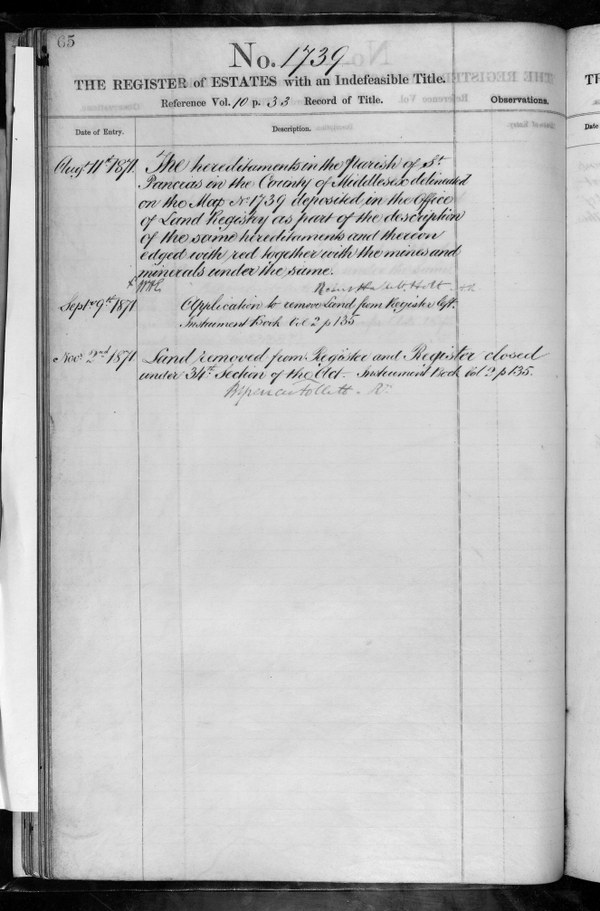 65
No. 1739
THE REGISTER of ESTATES with an Indefeasible Title.
Reference Vol. 10 p. 33 Record of Title.
Observations.
Date of Entry.
Description.
Augt 11th 1871
The hereditaments in the Parish of St
Pancras in the County of Middlesex delineated
on the Map No 1739 deposited in the Office
of Land Registry as part of the description
of the same hereditaments and thereon
edged with red together with the mines and
minerals under the same.
Septr 9th 1871
Application to remove Land from Register left.
Instrument Book Vol 2 p 135
Novr 2nd 1871
Land removed from Register and Register closed
under 34th Section of the Act. Instrument Book Vol 2 p 135.
Follett